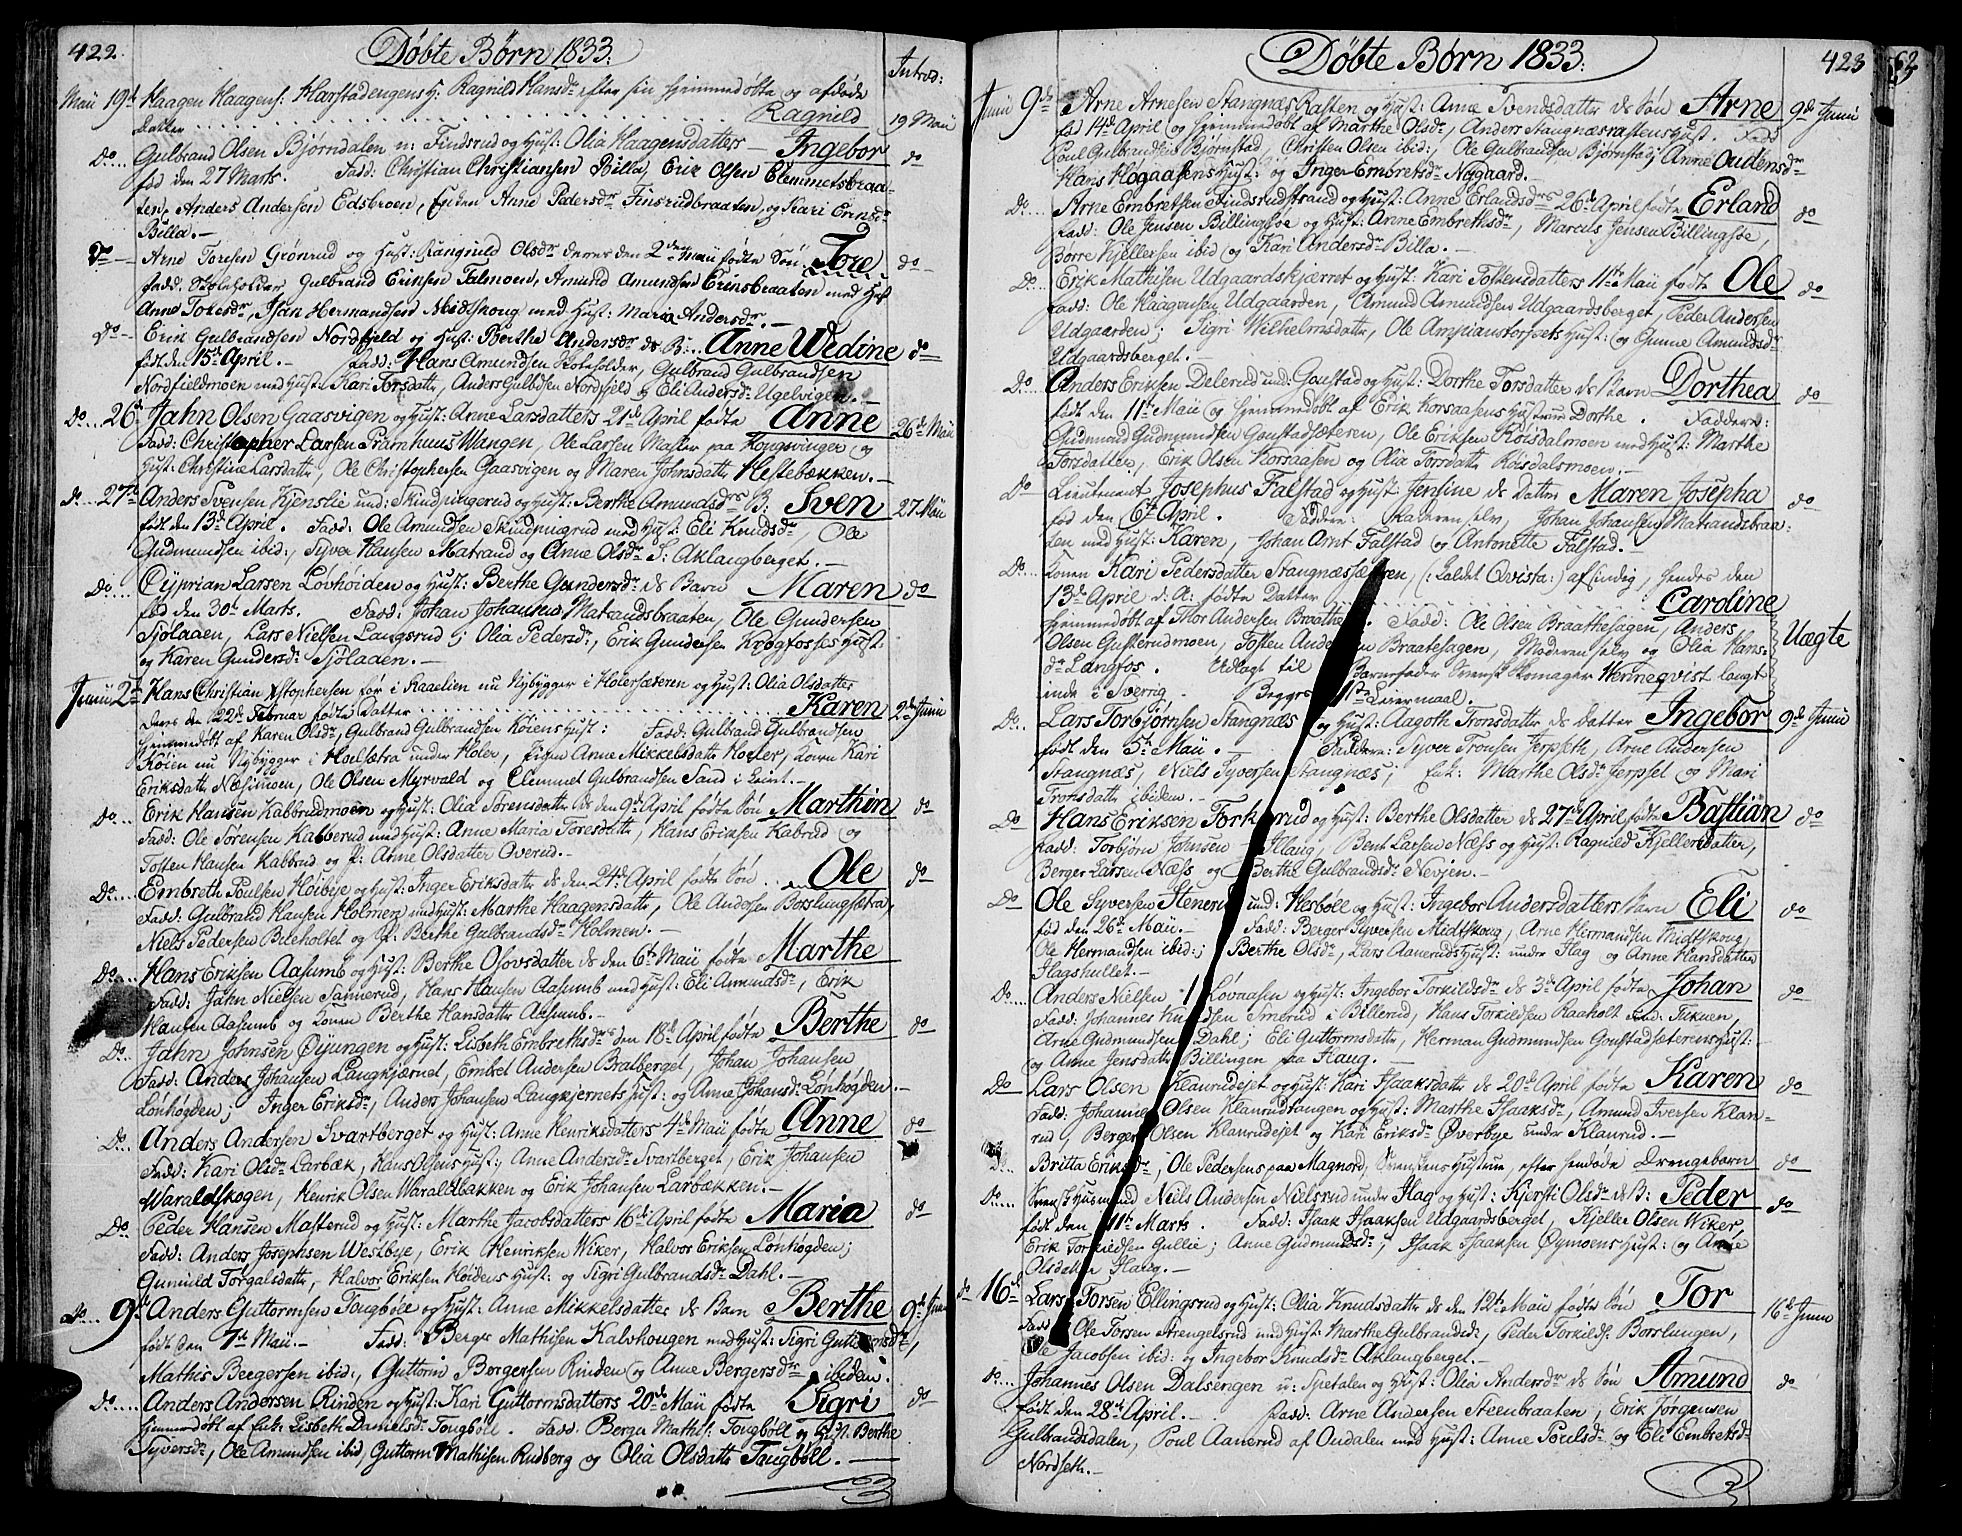 422.
Døbte Børn 1833.
Introd:
Maii 19d Haagen Haagens: Harstadengens H: Ragnild Hansdr efter sin hjemmedøbte og afdøde
Datter . . . . . Ragnild 19 Maii
Do.... Gulbrand Olsen Bjørndalen u: Findsrud og Hust: Olia Haagensdatters — Ingebor do
fød den 27 Marts. Fadd: Christian Christiansen Billa, Erik Olsen Clemmetsbraa-
ten, Anders Andersen Edsbroen, Enken Anne Pedersdr Finsrudbraaten, og Kari
Billa.—
Arne Toresen Grønrud og Hust: Rangnild Olsdr deres den 2den Maii fødte Søn Tore do
Fadd: Skoleholder Gulbrand Erinsen Talmoen, Amund Amundsen Erinsbraaten med Hust
Anne Toresdr, Jan Hermandsen Midtskoug med Hust: Maria Andersdr.—
Do— Erik Gulbrandsen Nordfjeld og Hust: Berthe Andersdr ds B:.. Anne Wedine do
født den 15d April.— Fadd: Hans Amundsen Skoleholder, Gulbrand Gulbrandsen
Nordfieldmoen med Hust: Kari Torsdattr, Anders Gulbrsen Nordfjeld og Eli Andersdr Ugelvigen.—
Do... 26d Jahn Olsen Gaasvigen og Hust: Anne Larsdatters 21d April fødte Anne 26d Maii
Fadd: Christopher Larsen Pramhuus Wangen, Ole Larsen Master paa Kongsvinger og
Hust: Christine Larsdattr, Ole Christophersen Gaasvigen og Maren Johnsdattr Hestebækken.—
Do... 27d Anders Svensen Kjenslie und: Skindpungrud og Hust: Berthe Amundsdrs B: Sven 27 Maii
født den 13d April. Fadd: Ole Amundsen Skindpungrud med Hust: Eli Knudsdr, Ole
Gudmundsen ibid:, Syver Hansen Matrand og Anne Olsdr S: Aklangberget.—
Do... Cyprian Larsen Løvhøiden og Hust: Berthe Gundersdr ds Barn Maren do
fød den 30d Marts. Fadd: Johan Johannes: Matrandsbraaten, Ole Gundersen
Sjølaaen, Lars Nielsen Langsrud; Olia Pedersdr, Erik Gundersen Krogfosses Hust
og Karen Gundersdr Sjølaaen.—
Junii 2d Hans Christian Xstophersen før i Raaelien nu Nybygger i Holersæteren og Hust: Olia Olsdatter
deres den 22d Februar fødte Datter . . . . . Karen 2d Junii
hjemmedøbt af Karen Olsdr, Gulbrand Gulbrandsen Kôiens Hust: Fadd: Gulbrand Gulbrandsen
Kôien nu Nybygger i Holsætra under Holer, Pigen Anne Mikkelsdattr Holler, Konen Kari
Eriksdattr Næsimoen, Ole Olsen Myrvald og Clemmet Gulbrandsen Sand i Leirit.—
Do... Erik Hansen Kabbrudmoen og Hust: Olia Sørensdattr ds den 9d April fødte Søn Marthin do
Fadd: Ole Sørensen Kabberud med Hust: Anne Maria Toresdattr, Hans Eriksen Kabrud og
Tosten Hansen Kabbrud og P: Anne Olsdatter Overud.—
Do.... Embreth Poulsen Høibye og Hust: Inger Eriksdattr ds den 24d April fødte Søn .. Ole do
Fadd: Gulbrand Hansen Holmen med Hust: Marthe Haagensdattr, Ole Andersen Borslungsætra,
Niels Pedersen Bileholtet og P: Berthe Gulbrandsdr Holmen.—
Do... Hans Eriksen Aasumb og Hust: Berthe Osovsdatter ds den 6d Maii fødte Marthe
Fadd: Jahn Nielsen Tannerud, Hans Hansen Aasumb med Hust: Eli Amundsdr, Erik
Hansen Aasumb og Konen Berthe Hansdatter Aasumb.—
Do... Jahn Johnsen Øiungen og Hust: Lisbeth Embrethsdrs den 18d April fødte Berthe do
Fadd: Anders Johansen Langkjærnet, Embret Andersen Bratberget, Johan Johansen
Lønhøgden; Inger Eriksdr, Anders Johansen Langkjernets Hust: og Anne Johansdr Lønhøgden.—
Do... Anders Andersen Svartberget og Hust: Anne Henriksdatters 4d Maii fødte Anne do
Fadd: Kari Olsdr Larbæk, Hans Olsens Hust:, Anne Andersdr Svartberget, Erik Johansen
Waraldskogen, Henrik Olsen Waraldbakken og Erik Johansen Larbækken.—
Do Peder Hansen Masterud og Hust: Marthe Jacobsdatters 16d April fødte Maria do
Fadd: Anders Josephsen Westbye, Erik Henriksen Wiker, Halvor Eriksen Lønhøgden;
Gunuld Torgalsdattr, Halvor Eriksen Høidens Hust: og Sigri Gulbrandsdr Dahl.—
Do... 9d Anders Guttormsen Tougbøle og Hust: Anne Mikkelsdatter ds Barn Berthe 9d Junii
født den 7d Maii.— Fadd: Berger Mathisen Kalvhougen med Hust: Sigri Guttormsdr,
Mathis Bergersen ibid:, Guttorm Bergersen Rinden og Anne Bergersdr ibidem.
Do.... Anders Andersen Rinden og Hust: Kari Guttormsdatters 20d Maii fødte Sigri do
hjemmedøbt af Enke Lisbeth Danielsd: Tougbøl. Fadd: Berger Mathis: Tougbøll og Hust. Berthe
Syversdr, Ole Amundsen ibid, Guttorm Mathisen Rudberg og Olia Olsdattr Tougbøll.—
Døbte Børn 1833.
423
Junii 9d Arne Arnesen Stangnæs Rasten og Hust: Anne Svendsdatter ds Søn Arne 9d Junii
fød 14d April og hjemmedøbt af Marthe Olsdr, Anders Stangnæsrastens Hust. Fadd
Poul Gulbrandsen Bjørnstad, Christen Olsen ibid:, Ole Gulbrandsen Bjørnstad; Anne Oudensdr
Hans Høgaasens Hust: og Inger Embretsdr Nøgaard.—
Do.... Arne Embretsen Findsrudstrand og Hust: Anne Erlandsdrs 26d April fødte Erland do
Fadd: Ole Jensen Billingsøe og Hust: Anne Embrethsdr, Marcus Jensen Billingsøe,
Børre Kjellersen ibid og Kari Andersdr Billa.—
Do... Erik Mathisen Udgaardskjærret og Hust: Kari Tostensdatters 11te Maii fødte Ole do
Fadd: Ole Haagensen Udgaarden, Amund Amundsen Udgaardsberget, Peder Andersen
Udgaarden; Sigri Wilhelmsdattr, Ole Ampianstorpets Hust: og Gunne Amundsdr
Udgaardsberget.—
Do... Anders Eriksen Delerud und: Goustad og Hust: Dorthe Torsdatter ds Barn Dorthea do
født den 11te Maii og hjemmedøbt af Erik Korsaasens Hustrue Dorthe. Faddere:
Gudmund Gudmundsen Goustadsæteren, Ole Eriksen Røisdalmoen med Hust: Marthe
Torsdatter, Erik Olsen Korsaasen og Olia Torsdattr Røisdalsmoen.—
Do Lieutenant Josephus Falstad og Hust: Jensine ds Datter Maren Josepha do
fød den 6te April. Faddere: Faderen selv, Johan Johansen Matrandsbraa-
ten med Hust: Karen, Johan Arnt Falstad og Antonette Falstad.—
Do... Konen Kari Pedersdatter Stangnæssæteren, (: kaldet Qvista:) afsindig, hendes den
13d April d. A: fødte Datter . . . . . Cardine
hjemmedøbt af Thor Andersen Braathe. Fadd: Ole Olsen Braathesagen, Anders
Olsen Gusterudmoen, Tosten Andersen Braatesagen, Moderen selv og Olia Hans-
dr Langfos. Udlagt til Barnefader Svensk Skomager Wenneqvist langt
inde i Sverrig. Begges 1ste Leiermaal. Uægte
Do.. Lars Torbjørnsen Stangnæs og Hust: Aagoth Tronsdattr ds Datter Ingebor 9d Junii
født den 5d Maii.— Faddere: Syver Tronsen Jerpseth, Arne Andersen
Stangnæs, Niels Syversen Stangnæs; Enk: Marthe Olsdr Jerpset og Mari
Tronsdattr ibidem.—
Do Hans Eriksen Torkerud og Hust: Berthe Olsdatter ds 27d April fødte Bastian do
Fadd: Torbjørn Johnsen Haug, Bent Larsen Næss og Hust: Ragnild Kjellersdatter,
Berger Larsen Næss og Berthe Gulbrandsdr Nevjen.—
Do Ole Syversen Stenerud und: Hesbøll og Hust: Ingebor Andersdatters Barn Eli do
fød den 26d Maii.— Fadd: Berger Syversen Midtskoug, Arne Hermandsen Midtskoug,
Ole Hermandsen ibid:; Berthe Olsdr, Lars Aaneruds Hust: under Hag og Anne Hansdatter
Hagshullet.—
Do.... Anders Nielsen Løvaasen og Hust: Ingebor Torkildsdr ds 3d April fødte Johan do
Fadd: Johannes Knudsen Smerud i Billerud, Hans Torkildsen Raaholt und: Tukuen,
Arne Gudmundsen Dahl; Eli Guttormsdattr, Herman Gudmundsen Goustadsæterens Hust:
og Anne Jensdattr Billingen paa Haug.—
Do— Lars Olsen Klanrudejet og Hust: Kari Isaaksdattr ds 20d April fødte Karen do
Fadd: Johannes Olsen Klanrudtangen og Hust: Marthe Isaaksdr, Amund Iversen Klan-
rud, Berger Olsen Klanrudejet og Kari Eriksdr Øverbye under Klanrud.—
Do.. Britta Eriksdr, Ole Pedersens paa Magnord, Svenskens Hustrue, efter hendøde Drengebarn do
Do.... Svensk Husmand Niels Andersen Nielsrud under Hag og Hust: Kjersti Olsdr ds B: Peder do
født den 11te Marts. Fadd: Isaak Isaaksen Udgaardsberget, Kjeller Olsen Wiker,
Erik Torkildsen Gullie; Anne Gudmundsdr, Isaak Isaaksen Øymoens Hust: og Anne
Olsdatter Haug.—
do 16d Lars Torsen Ellingsrud og Hust: Olia Knudsdattr ds den 12te Maii fødte Søn Tor 16d Junii
Fadd: Ole Torsen Strengelsrud med Hust: Marthe Gulbrandsd:, Peder Torkilds: Borslungen,
Ole Jacobsen ibid: og Ingebor Knudsdr Aklangberget.—
Do... Johannes Olsen Dalsengen u: Spetalen og Hust: Olia Andersdr ds Søn Amund do
født den 28de April.— Fadd: Arne Andersen Steenbraaten, Erik Jørgensen
Gulbrandsdalen, Poul Aanerud af Oudalen med Hust: Anne Poulsdr og Eli Embretsdr
Nordseth.—